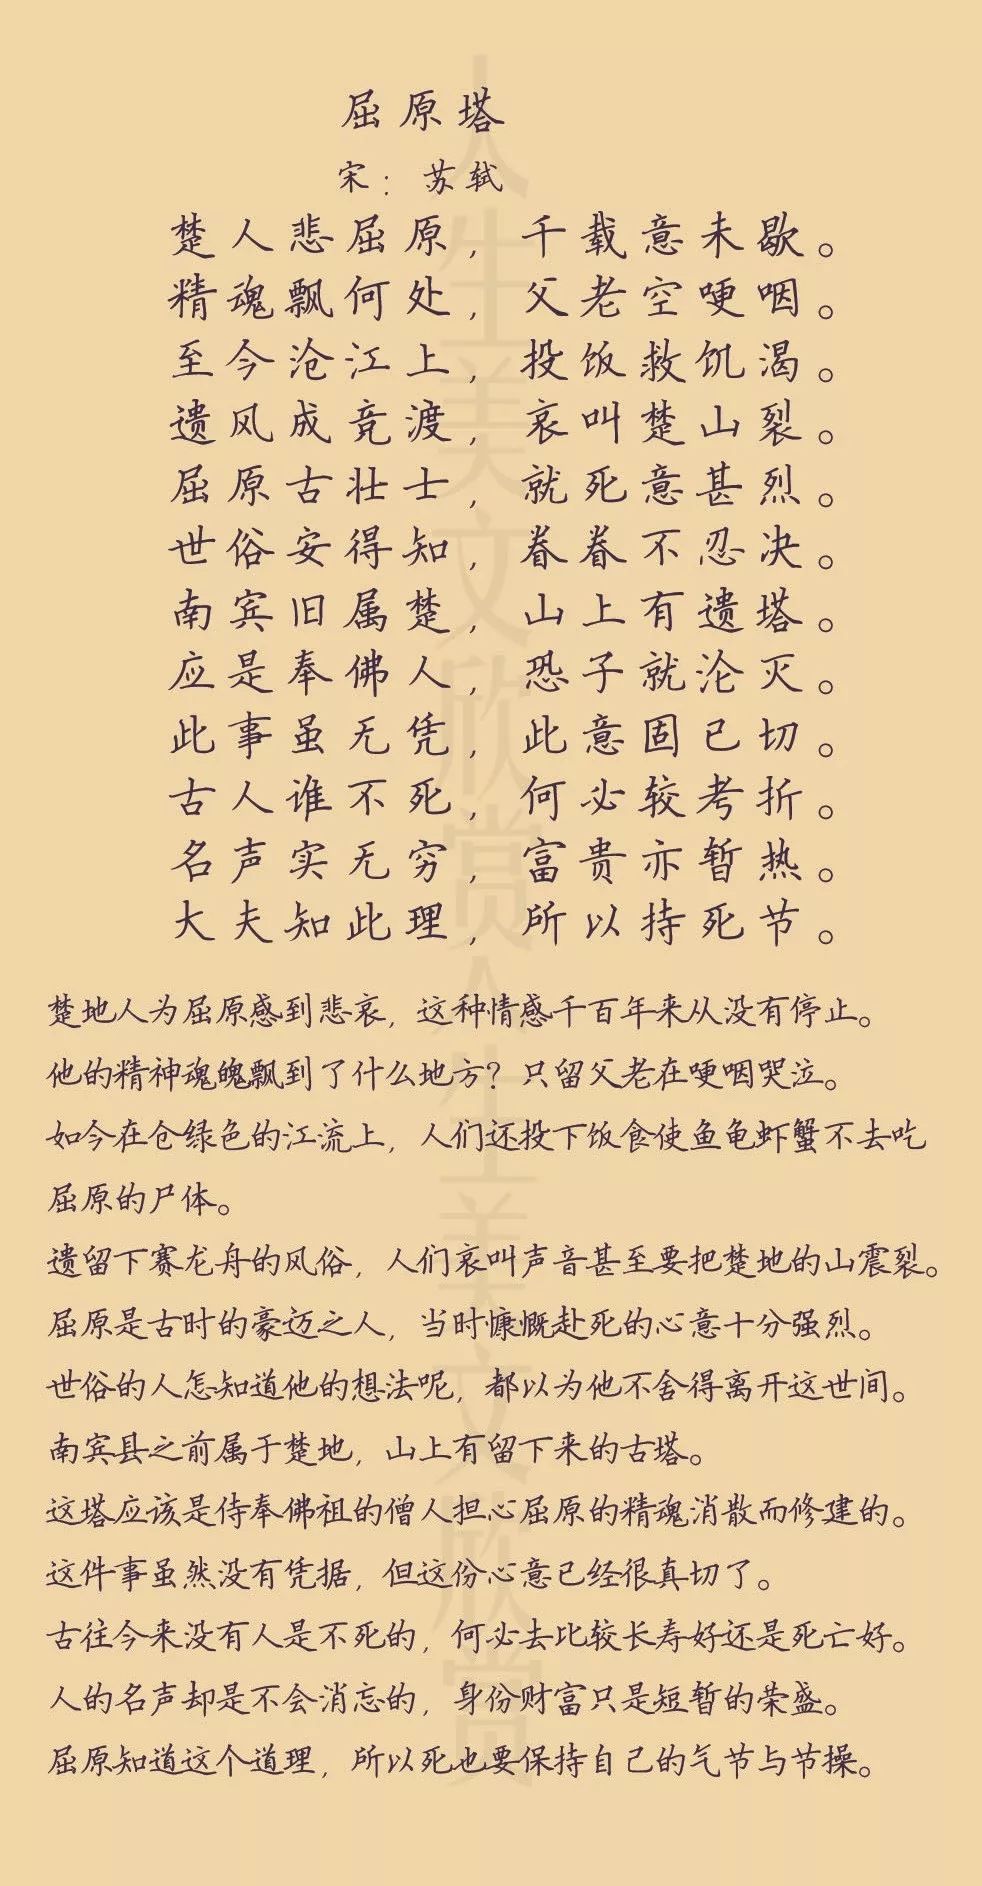 屈原塔
宋：苏轼
楚人悲屈原，千载意未歇。
精魂飘何处，父老空哽咽。
至今沧江上，投饭救饥渴。
遗风成竞渡，哀叫楚山裂。
屈原古壮士，就死意甚烈。
世俗安得知，眷眷不忍决。
南宾旧属楚，山上有遗塔。
应是奉佛人，恐子就沦灭。
此事虽无凭，此意固已切。
古人谁不死，何必较考折。
名声实无穷，富贵亦暂热。
大夫知此理，所以持死节。
楚地人为屈原感到悲哀，这种情感千百年来从没有停止。
他的精神魂魄飘到了什么地方？只留父老在哽咽哭泣。
如今在仓绿色的江流上，人们还投下饭食使鱼龟虾蟹不去吃
屈原的尸体。
遗留下赛龙舟的风俗，人们哀叫声音甚至要把楚地的山震裂。
屈原是古时的豪迈之人，当时慷慨赴死的心意十分强烈。
世俗的人怎知道他的想法呢，都以为他不舍得离开这世间。
南宾县之前属于楚地，山上有留下来的古塔。
这塔应该是侍奉佛祖的僧人担心屈原的精魂消散而修建的。
这件事虽然没有凭据，但这份心意已经很真切了。
古往今来没有人是不死的，何必去比较长寿好还是死亡好。
人的名声却是不会消忘的，身份财富只是短暂的荣盛。
屈原知道这个道理，所以死也要保持自己的气节与节操。
人生美文欣赏人生美文欣赏